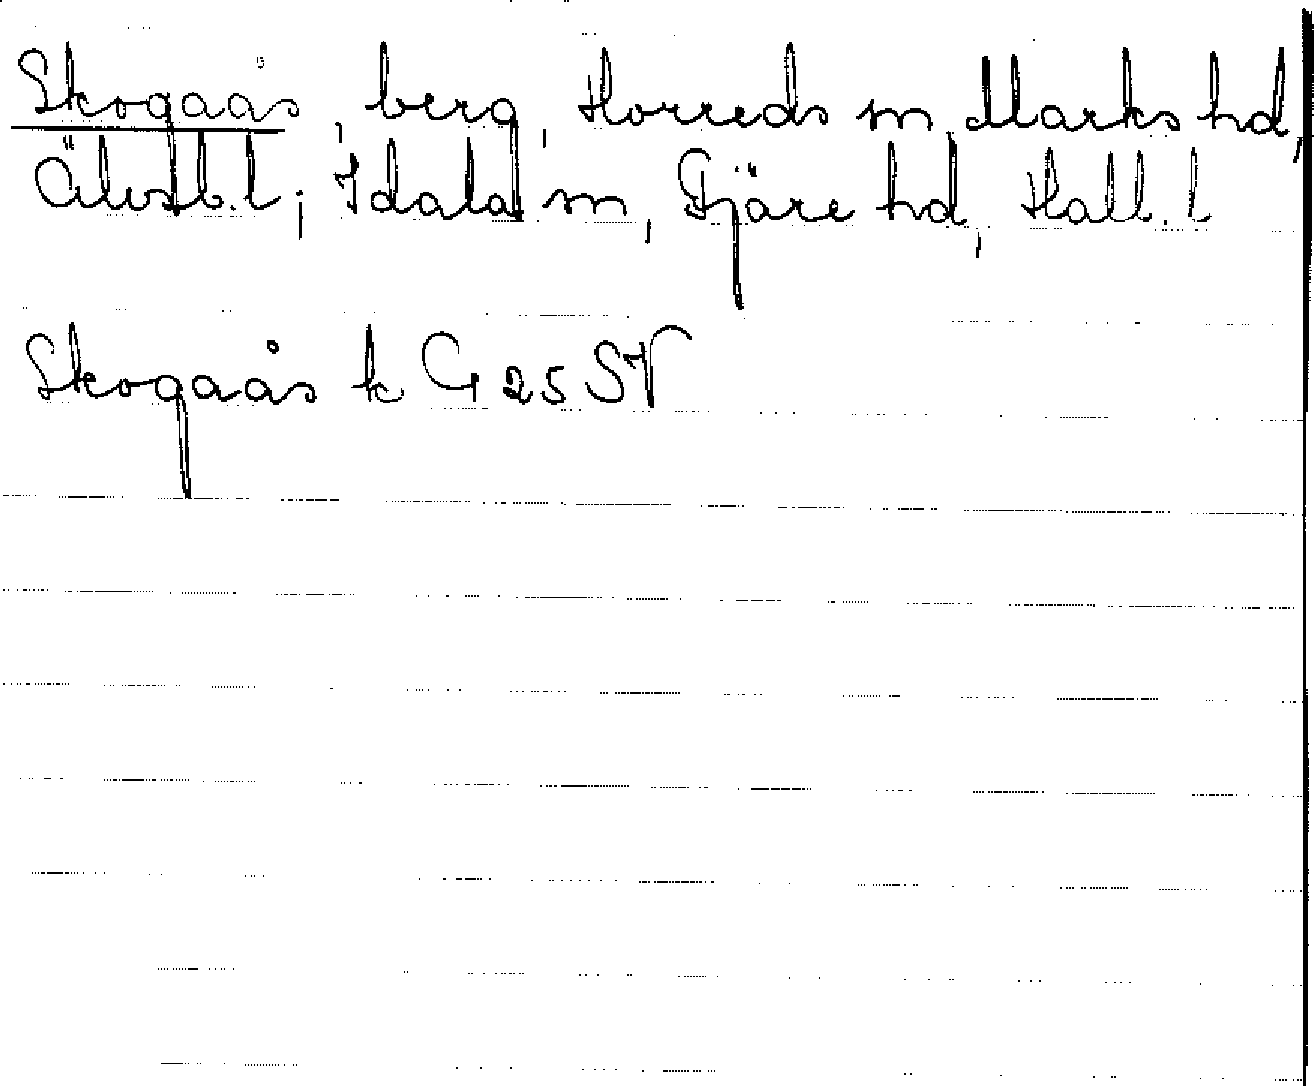 Skogaås, berg, Horreds sn, Marks hd,
Älvsb.l; Idala sn, Fjäre hd, Hall.l
Skogaås k G 25 SV